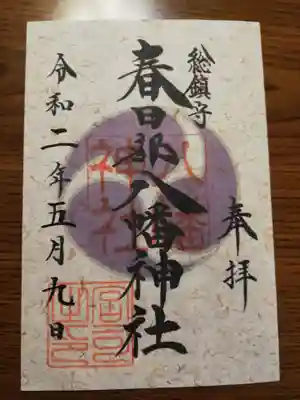 奉拝
総鎮守
春日部八幡神社
八幡
神社
令和二年五月九日